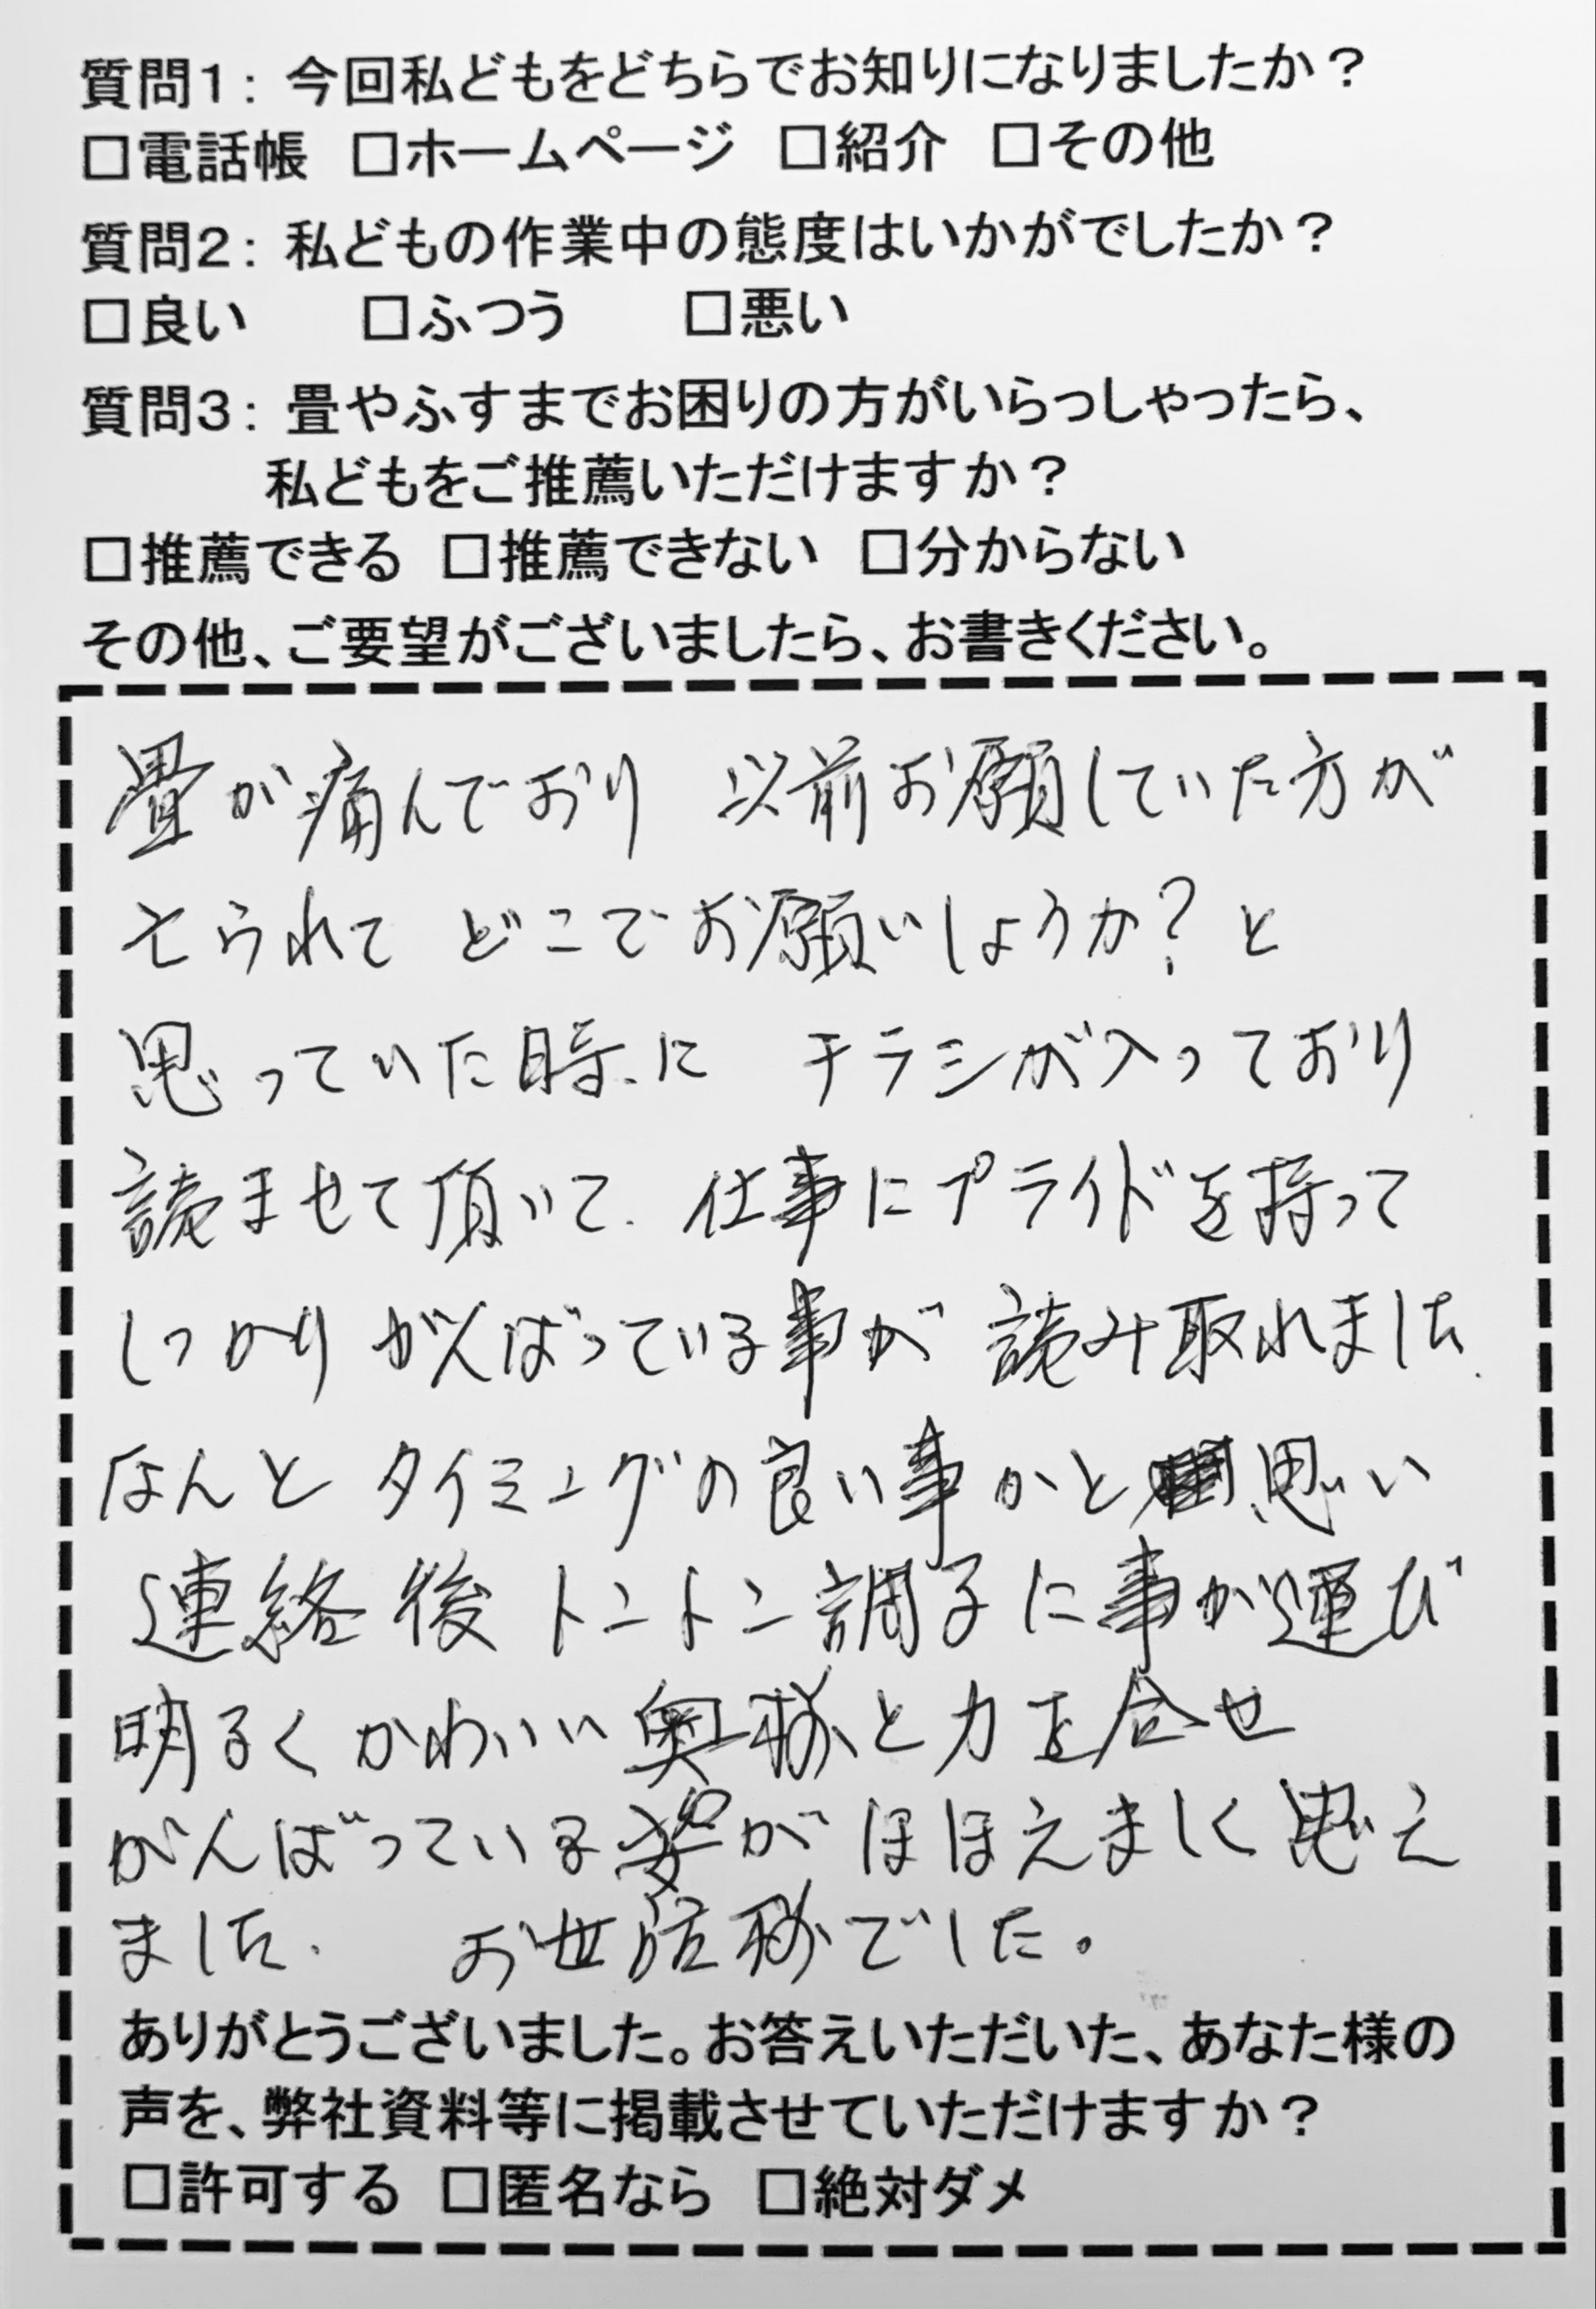 質問1：今回私どもをどちらでお知りになりましたか？
□電話帳 □ホームページ □紹介 □その他
質問2：私どもの作業中の態度はいかがでしたか？
□良い □ふつう □悪い
質問3：畳やふすまでお困りの方がいらっしゃったら、
私どもをご推薦いただけますか？
□推薦できる □推薦できない □分からない
その他、ご要望がございましたら、お書きください。
畳が痛んでおり 以前お願していた方が
こられて どこでお願いしょうか？と
思っていた時に チラシが入っており
読ませて頂いて、仕事にプライドを持って
しっかりがんばっている事が 読み取れました.
なんと タイミングの良い事かと思い
連絡後 トントン調子に事が運び
明るくかわいい奥様と力を合せ
がんばっている姿が ほほえましく思え
ました. お世話様でした。
ありがとうございました。お答えいただいた、あなた様の
声を、弊社資料等に掲載させていただけますか？
□許可する □匿名なら □絶対ダメ